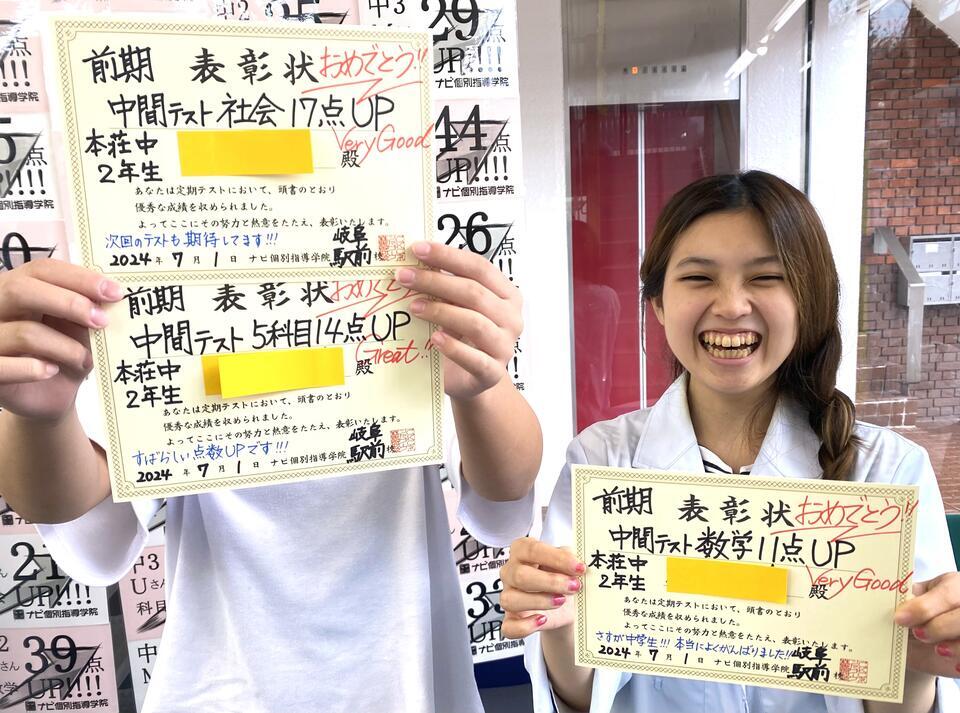 前期 表彰状 おめでとう!!
中間テスト 社会 17点UP
Very Good
本荘中
2年生
殿
あなたは定期テストにおいて、頭書のとおり
優秀な成績を収められました。
よってここにその努力と熱意をたたえ、表彰いたします。
次回のテストも期待してます!!!
2024年 7月 1日 ナビ個別指導学院 岐阜駅前校
前期 表彰状
中間テスト 5科目 14点UP
Great!!
本荘中
2年生
殿
あなたは定期テストにおいて、頭書のとおり
優秀な成績を収められました。
よってここにその努力と熱意をたたえ、表彰いたします。
すばらしい点数UPです!!!
2024年 7月 1日 ナビ個別指導学院 岐阜駅前校
前期 表彰状 おめでとう!!
中間テスト 数学 11点UP
Very Good
本荘中
2年生
殿
あなたは定期テストにおいて、頭書のとおり
優秀な成績を収められました。
よってここにその努力と熱意をたたえ、表彰いたします。
さすが中学生!!! 本当によくがんばりました!!
2024年 7月 1日 ナビ個別指導学院 岐阜駅前校
中3
29点
UP!!!
ナビ個別指導学院
44点
UP!!!!
ナビ個別指導学院
26点
21点
UP!!!!
ナビ個別指導学院
39点
UP!!!!
ナビ個別指導学院
中3
Uさん
科目